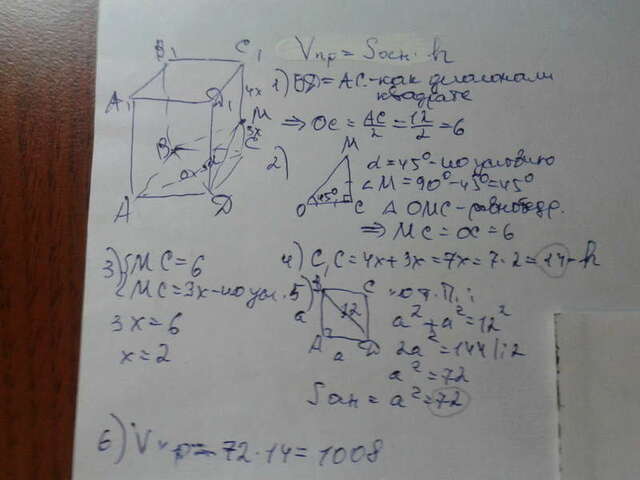 Vпр = Sосн · h
B₁ C₁ A₁ D₁ 4x M 3x B C O 45° A D
1) BD = AC - как диагонали
квадрата
⇒ OC = AC/2 = 12/2 = 6
2) M O 45° C
α = 45° - по условию
∠M = 90° - 45° = 45°
Δ OMC - равнобедр.
⇒ MC = OC = 6
3) { MC = 6
{ MC = 3x - по усл.
3x = 6
x = 2
4) C₁C = 4x + 3x = 7x = 7 · 2 = 14 - h
5) B C 12 a A a D
по т. П. :
a² + a² = 12²
2a² = 144 | : 2
a² = 72
Sосн = a² = 72
6) Vпр = 72 · 14 = 1008